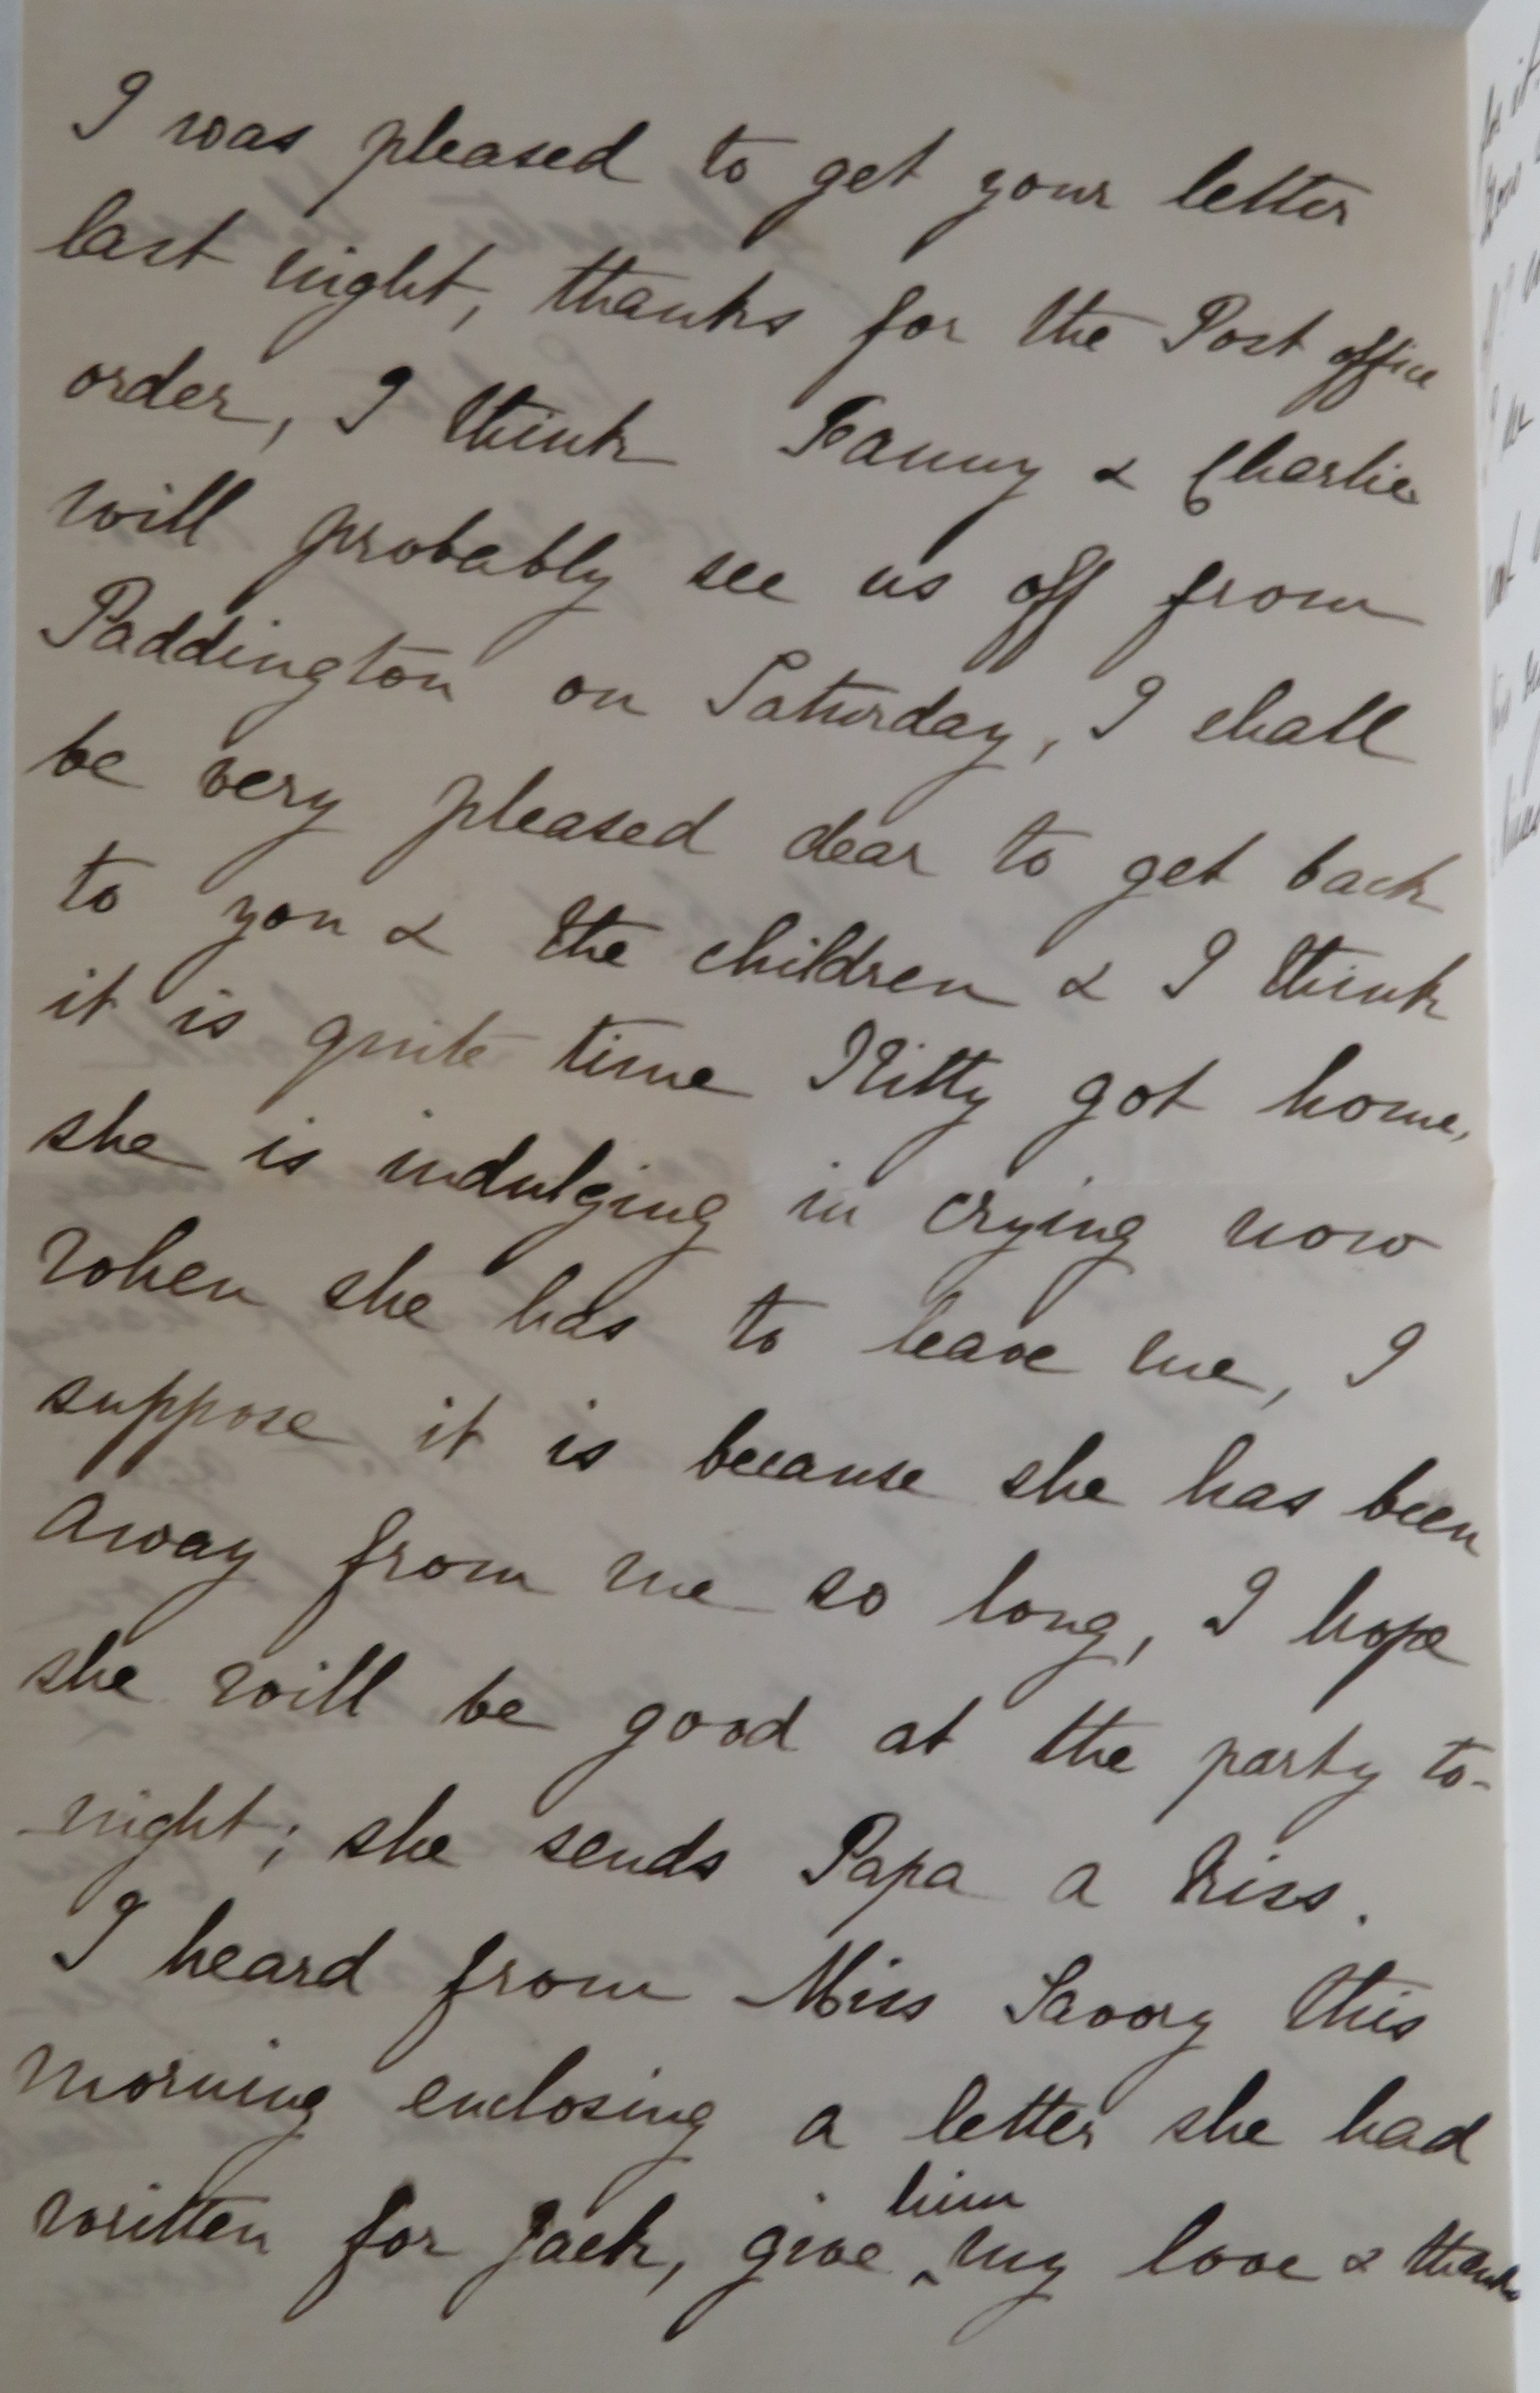 I was pleased to get your letter
last night, thanks for the Post office
order, I think Fanny & Charlie
will probably see us off from
Paddington on Saturday, I shall
be very pleased dear to get back
to you & the children & I think
it is quite time Kitty got home,
she is indulging in crying now
when she has to leave me, I
suppose it is because she has been
away from me so long, I hope
she will be good at the party to-
-night; she sends Papa a kiss.
I heard from Miss Savory this
morning enclosing a letter she had
written for Jack, give ^him my love & thanks